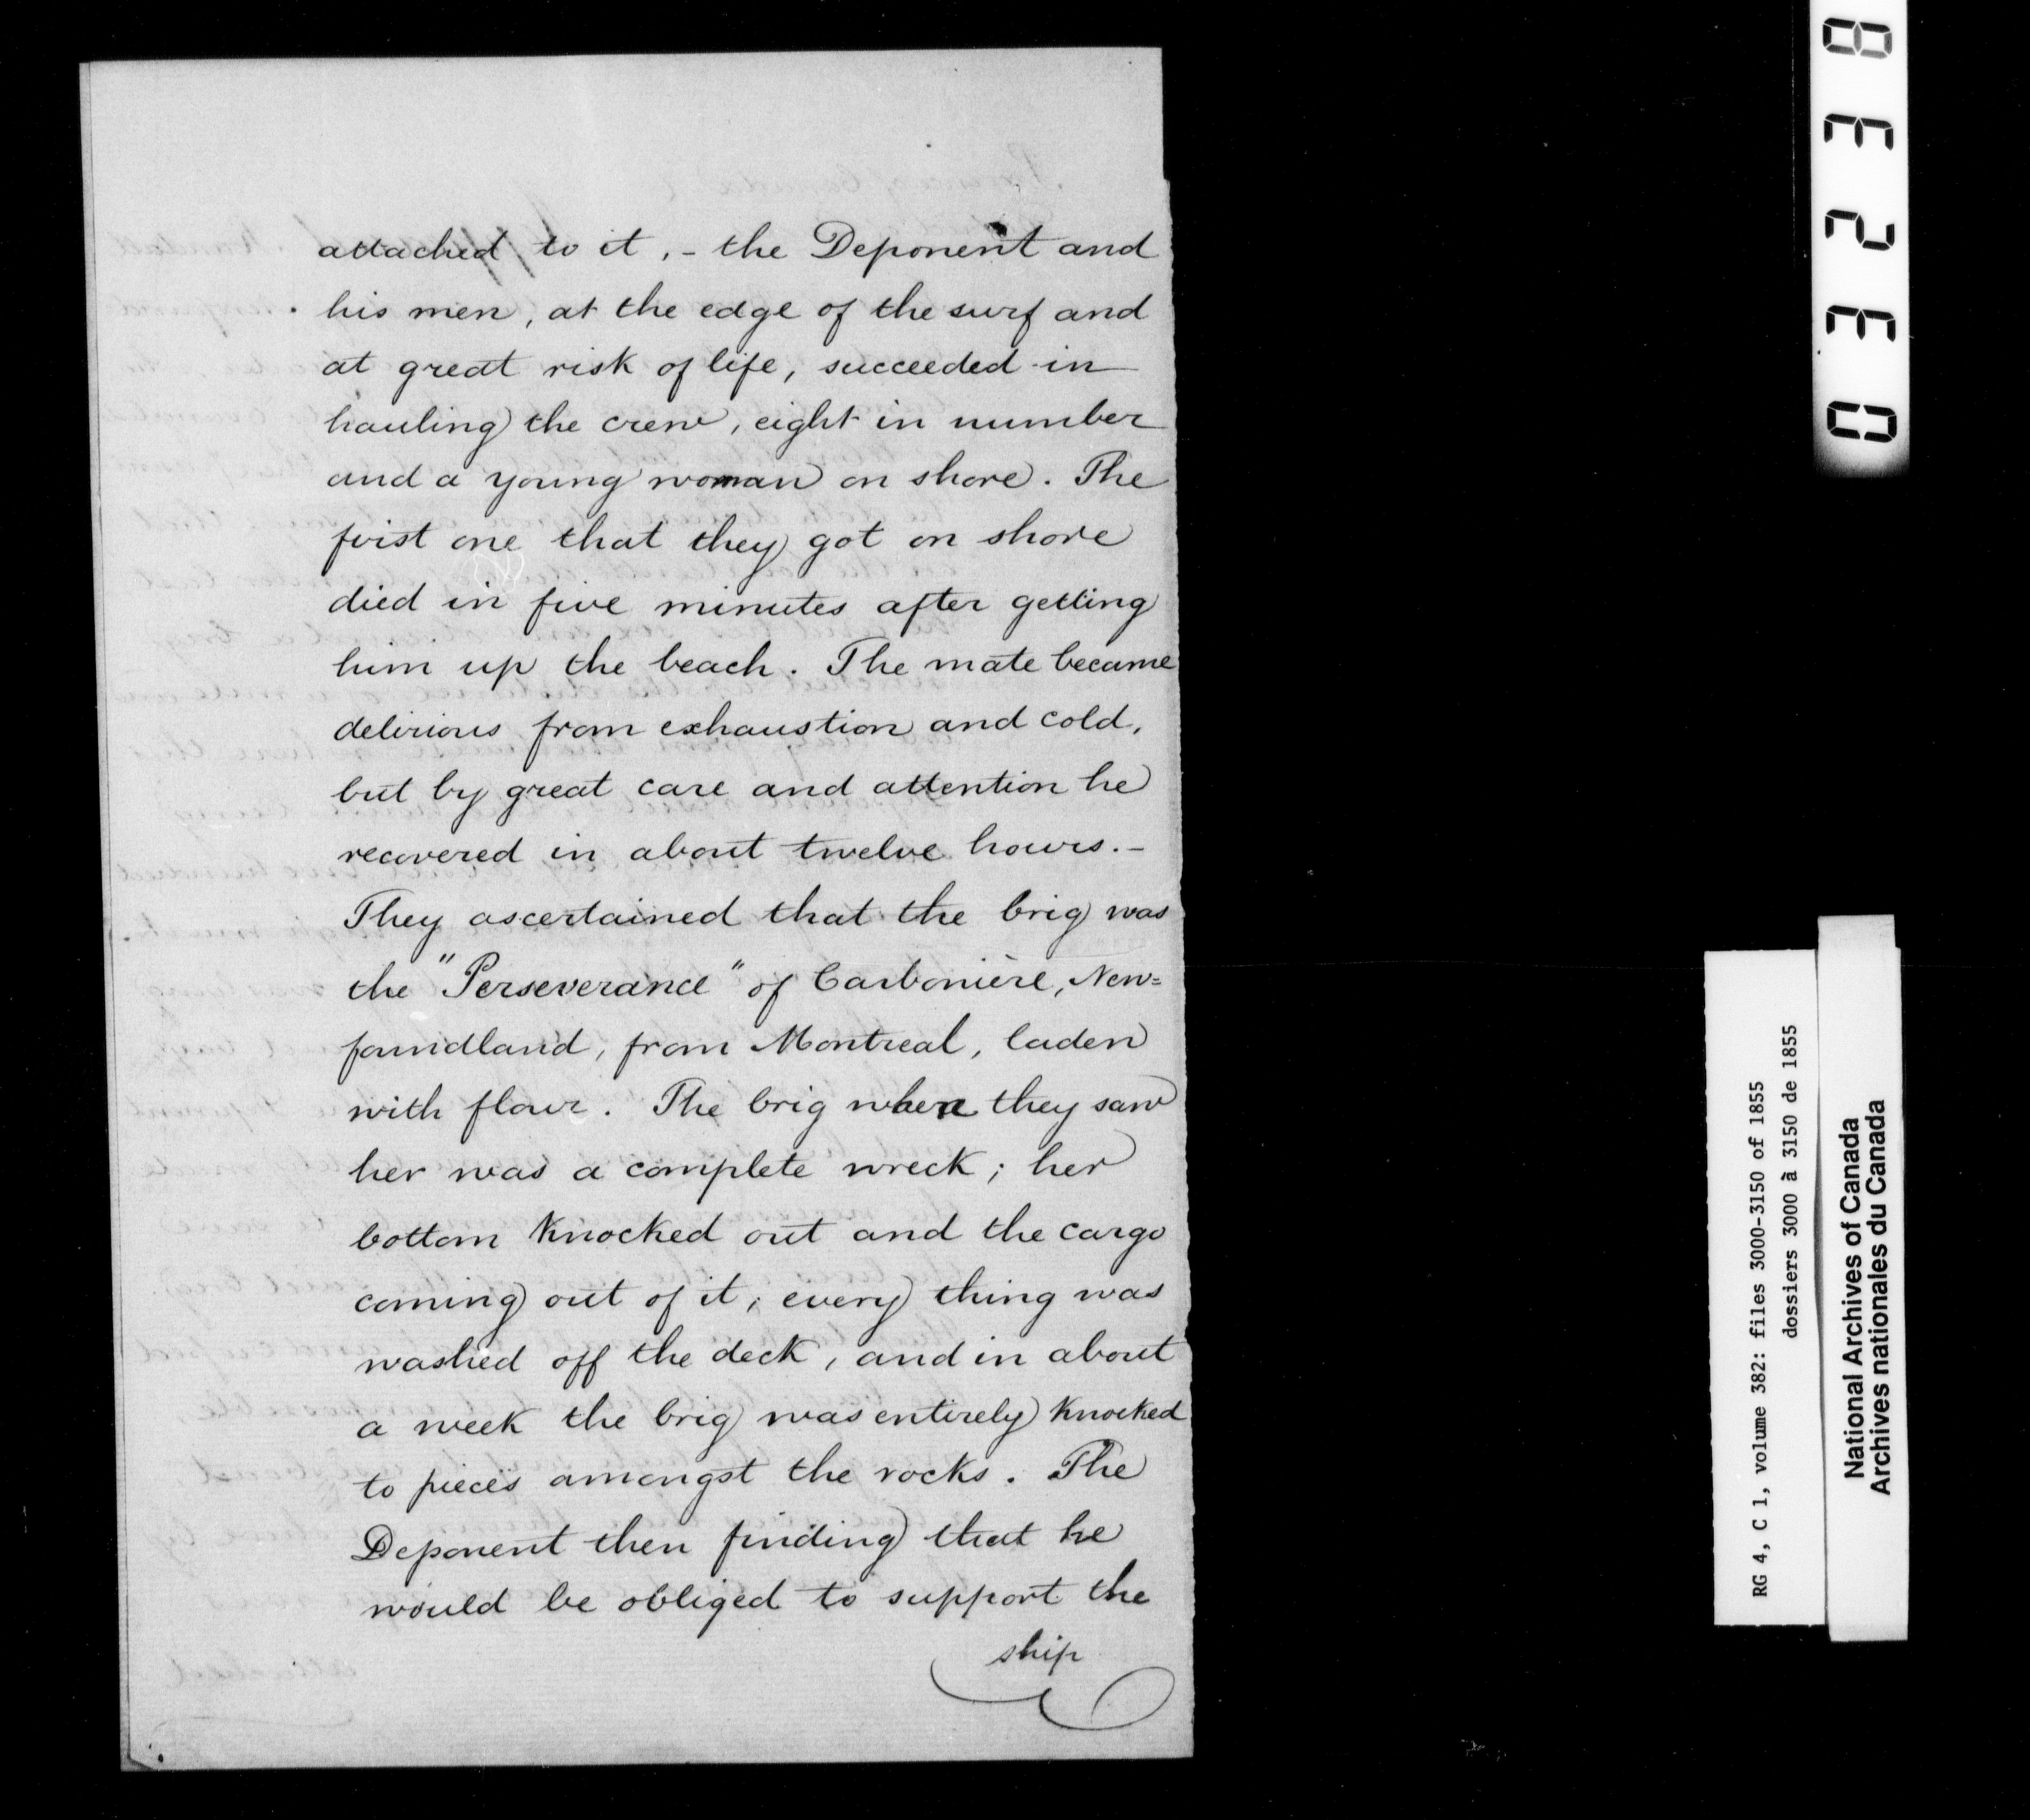 attached to it, - the Deponent and
his men, at the edge of the surf and
at great risk of life, succeeded in
hauling the crew, eight in number
and a young woman on shore. The
first one that they got on shore
died in five minutes after getting
him up the beach. The mate became
delirious from exhaustion and cold,
but by great care and attention he
recovered in about twelve hours. -
They ascertained that the brig was
the "Perseverance" of Carbonière, New=
foundland, from Montreal, laden
with flour. The brig when they saw
her was a complete wreck; her
bottom knocked out and the cargo
coming out of it; every thing was
washed off the deck, and in about
a week the brig was entirely knocked
to pieces amongst the rocks. The
Deponent then finding that he
would be obliged to support the
ship
RG 4, C 1, volume 382: files 3000-3150 of 1855
dossiers 3000 à 3150 de 1855
National Archives of Canada
Archives nationales du Canada
03238